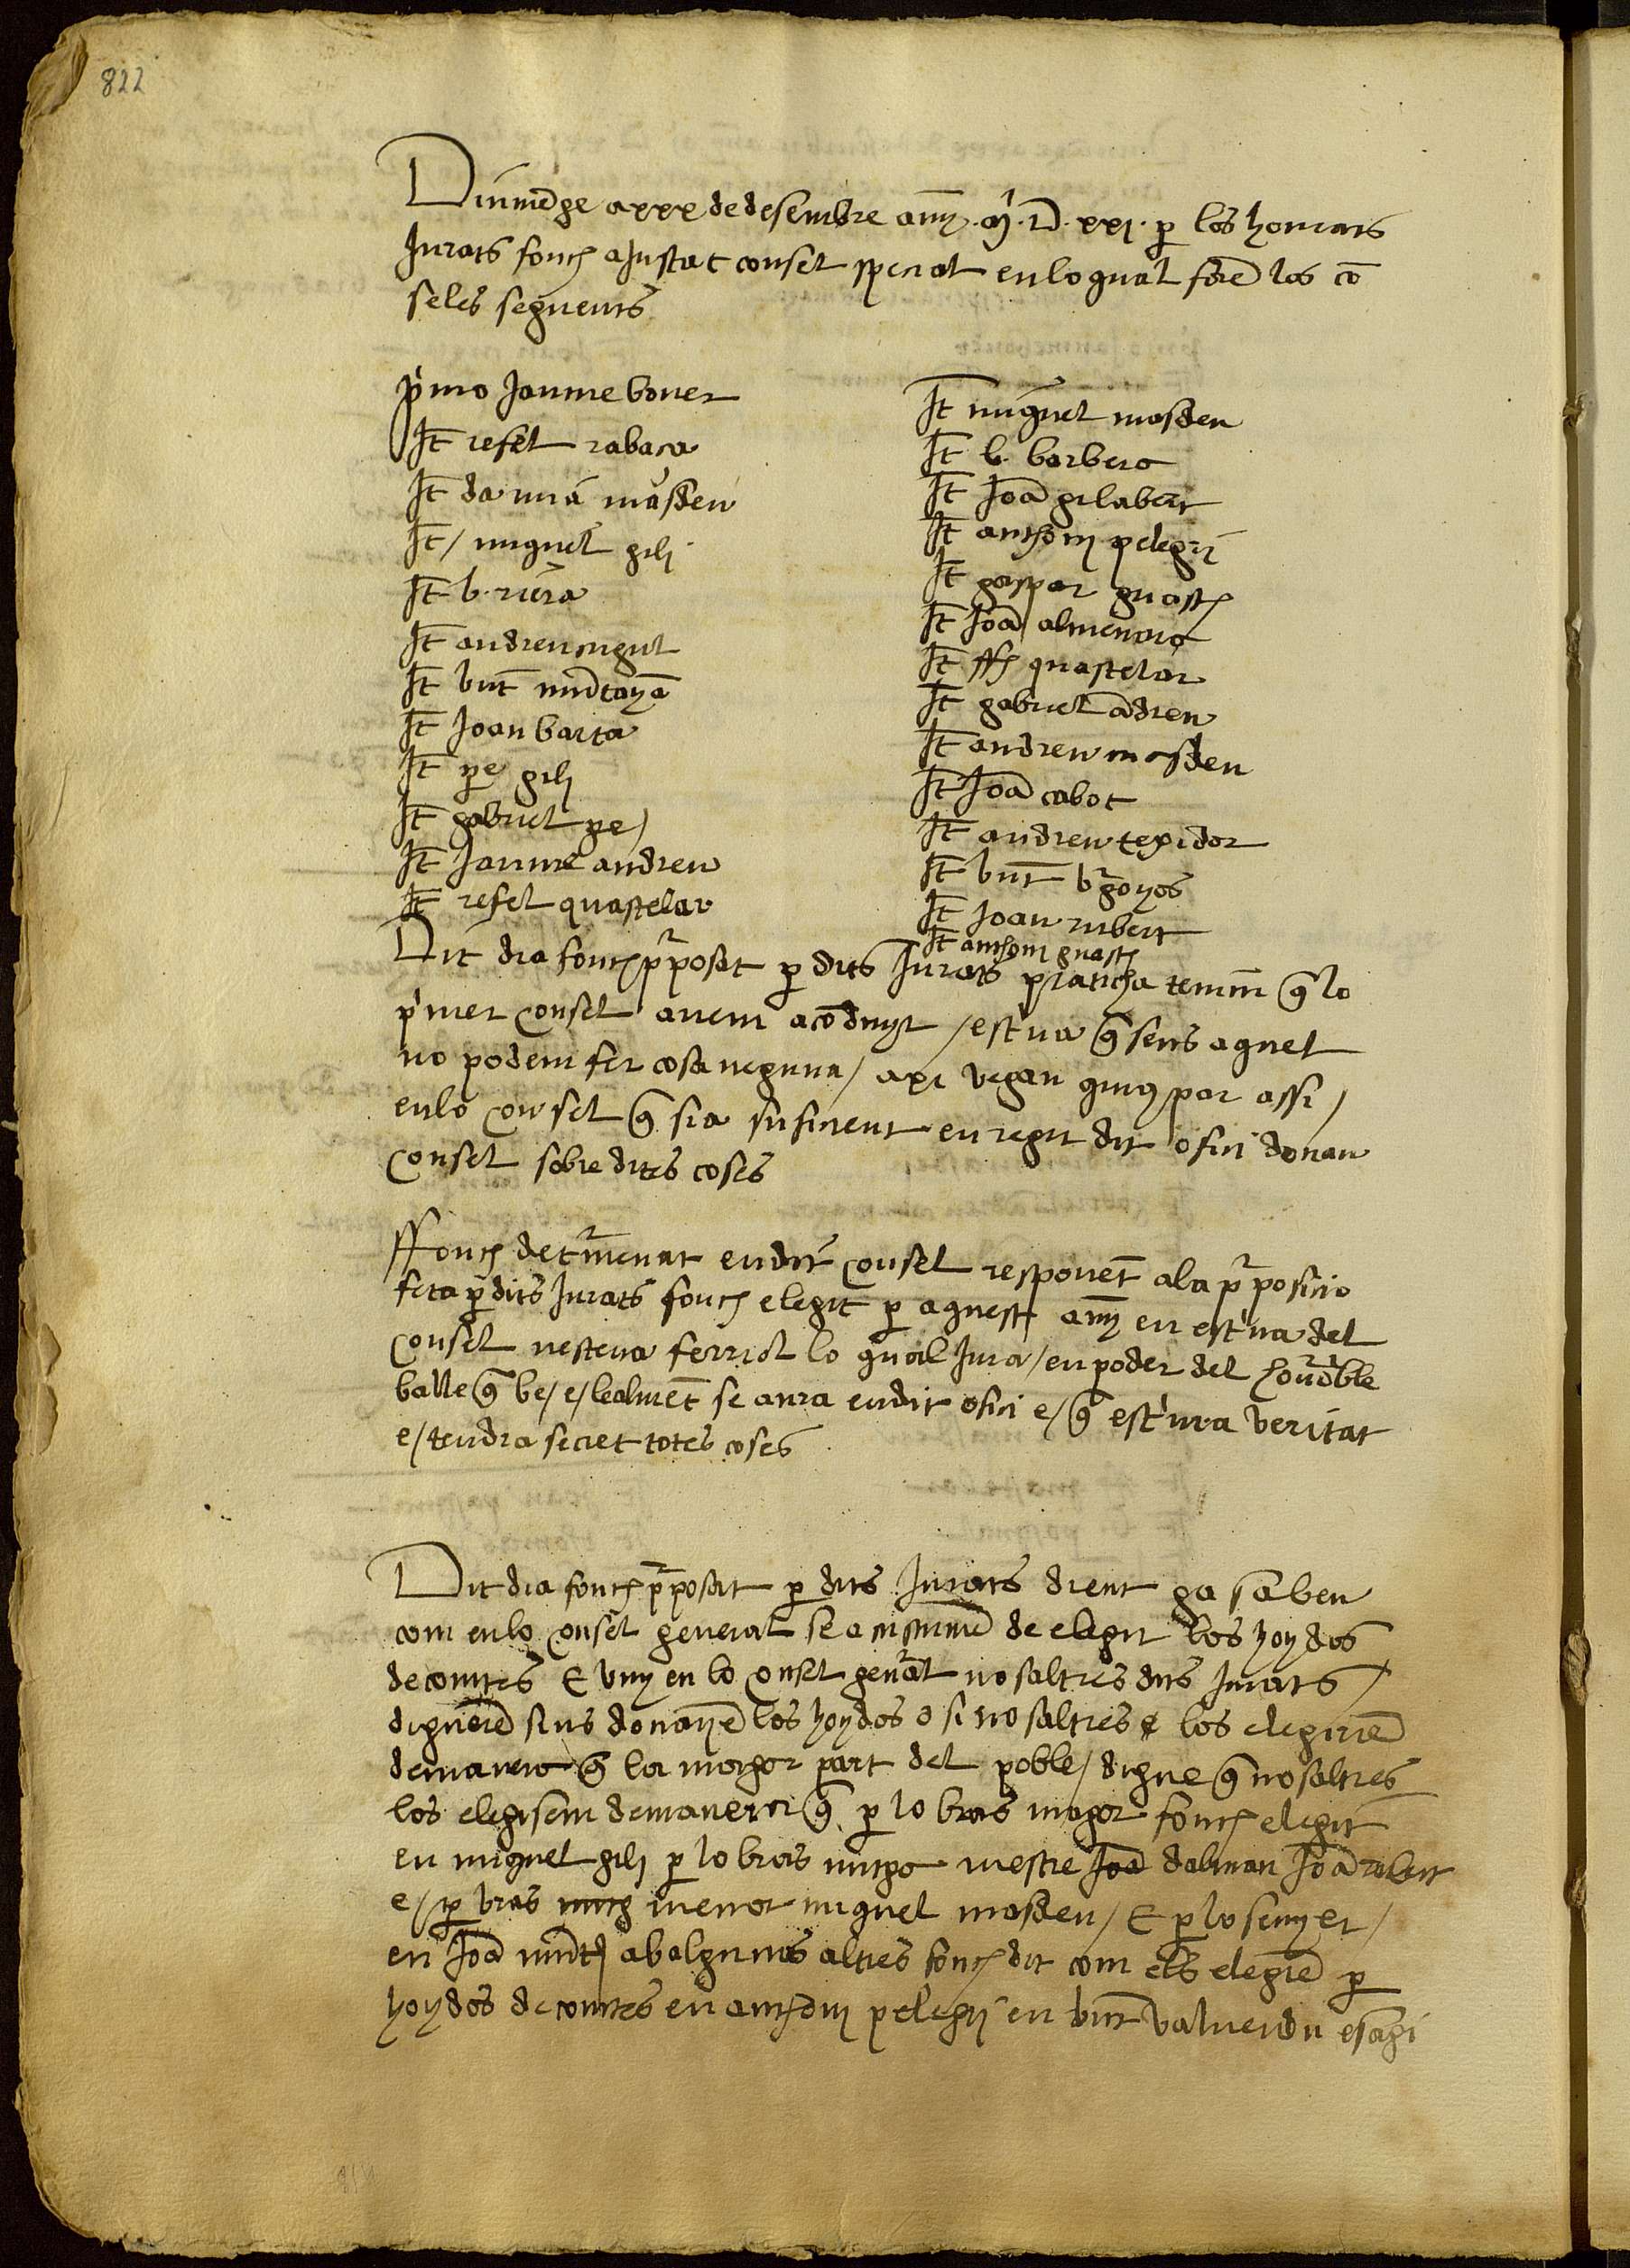 822
Diumēge a xxx de desembre añy .M.D.xxj. p los honrats
Jurats fonch aJustat consel special enloqual forē los cō
seles seguents
p'mo Jaume bover
Jt refel rabaça
Jt damiā masdeu
Jt / miquel gili
Jt b. riera
Jt andreu mgut
Jt bnt mōtanyā
Jt Joan barta
Jt pe gili
Jt gabriel pe /
Jt Jaume andreu
Jt refel quastelar
Jt miquel masdeu
Jt b. barbero
Jt Joā gilabert
Jt anthoni pelegri
Jt gaspar guasch
Jt Joā almenara
Jt ffr quastelar
Jt gabriel ādreu
Jt andreu masdeu
Jt Joā cabot
Jt andreu texidor
Jt bnt brgoyos
Jt Joan rubert
Jt anthoni guasch
Dit dia fonch pposat p dits Jurats praticha tenim q̄ lo
p'mer consel avem acōduyt / est'va q̄ sens aquel
no podem fer cosa neguna / axi vegan quiy par assi /
enlo consel q̄ sia suficient en regir dit ofici donan
consel sobre dites coses
ffonch det'menat endit consel responēt ala pposicio
feta p dits Jurats fonch elegit p aquest añy en est'va del
consel mesteva ferriol lo qual Jura / en poder del honōble
balle q̄ be / e / lealmēt se aura endit ofici e / q̄ est'ura veritat
e / tendra secret totes coses
Dit dia fonch pposat p dits Jurats dient ja saben
com enlo consel general se acustume de elegir los hoydos
de comtes E vuy en lo consel genāl nosaltres dits Jurats /
diguerē sius donariē los hoydos o si nosaltres los elegiriē
demanera q̄ la major part del poble / digue q̄ nosaltres
los elegisem demanera q̄ p lo bras major fonch elegit
en miquel gili p lo bras mitga mestre Joā dalmau Joā rubert
e / p bras mitg menor miquel masdeu / E p lo seny er /
en Joā mūtj ab alguns altres fonch dit com ells elegirē p
hoydos de comtes en anthoni pelegri en bnt valuerdu